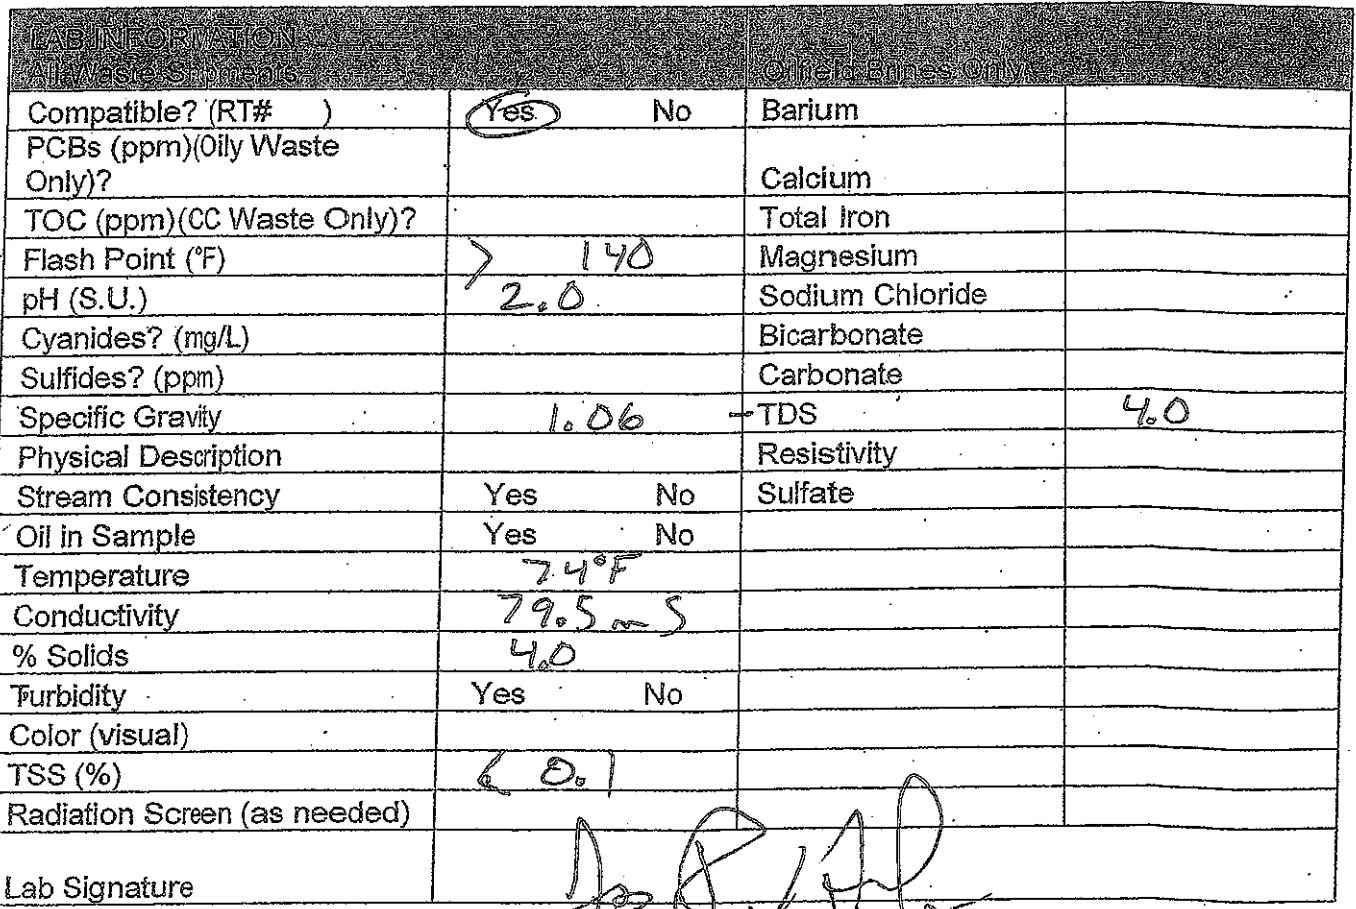 LAB INFORMATION
All Waste Shipments Oilfield Brines Only
Compatible? (RT# ) Yes No Barium
PCBs (ppm)(Oily Waste
Only)? Calcium
TOC (ppm)(CC Waste Only)? Total Iron
Flash Point (°F) > 140 Magnesium
pH (S.U.) 2.0 Sodium Chloride
Cyanides? (mg/L) Bicarbonate
Sulfides? (ppm) Carbonate
Specific Gravity 1.06 TDS 4.0
Physical Description Resistivity
Stream Consistency Yes No Sulfate
Oil in Sample Yes No
Temperature 74°F
Conductivity 79.5 mS
% Solids 4.0
Turbidity Yes No
Color (visual)
TSS (%) < 0.1
Radiation Screen (as needed)
Lab Signature